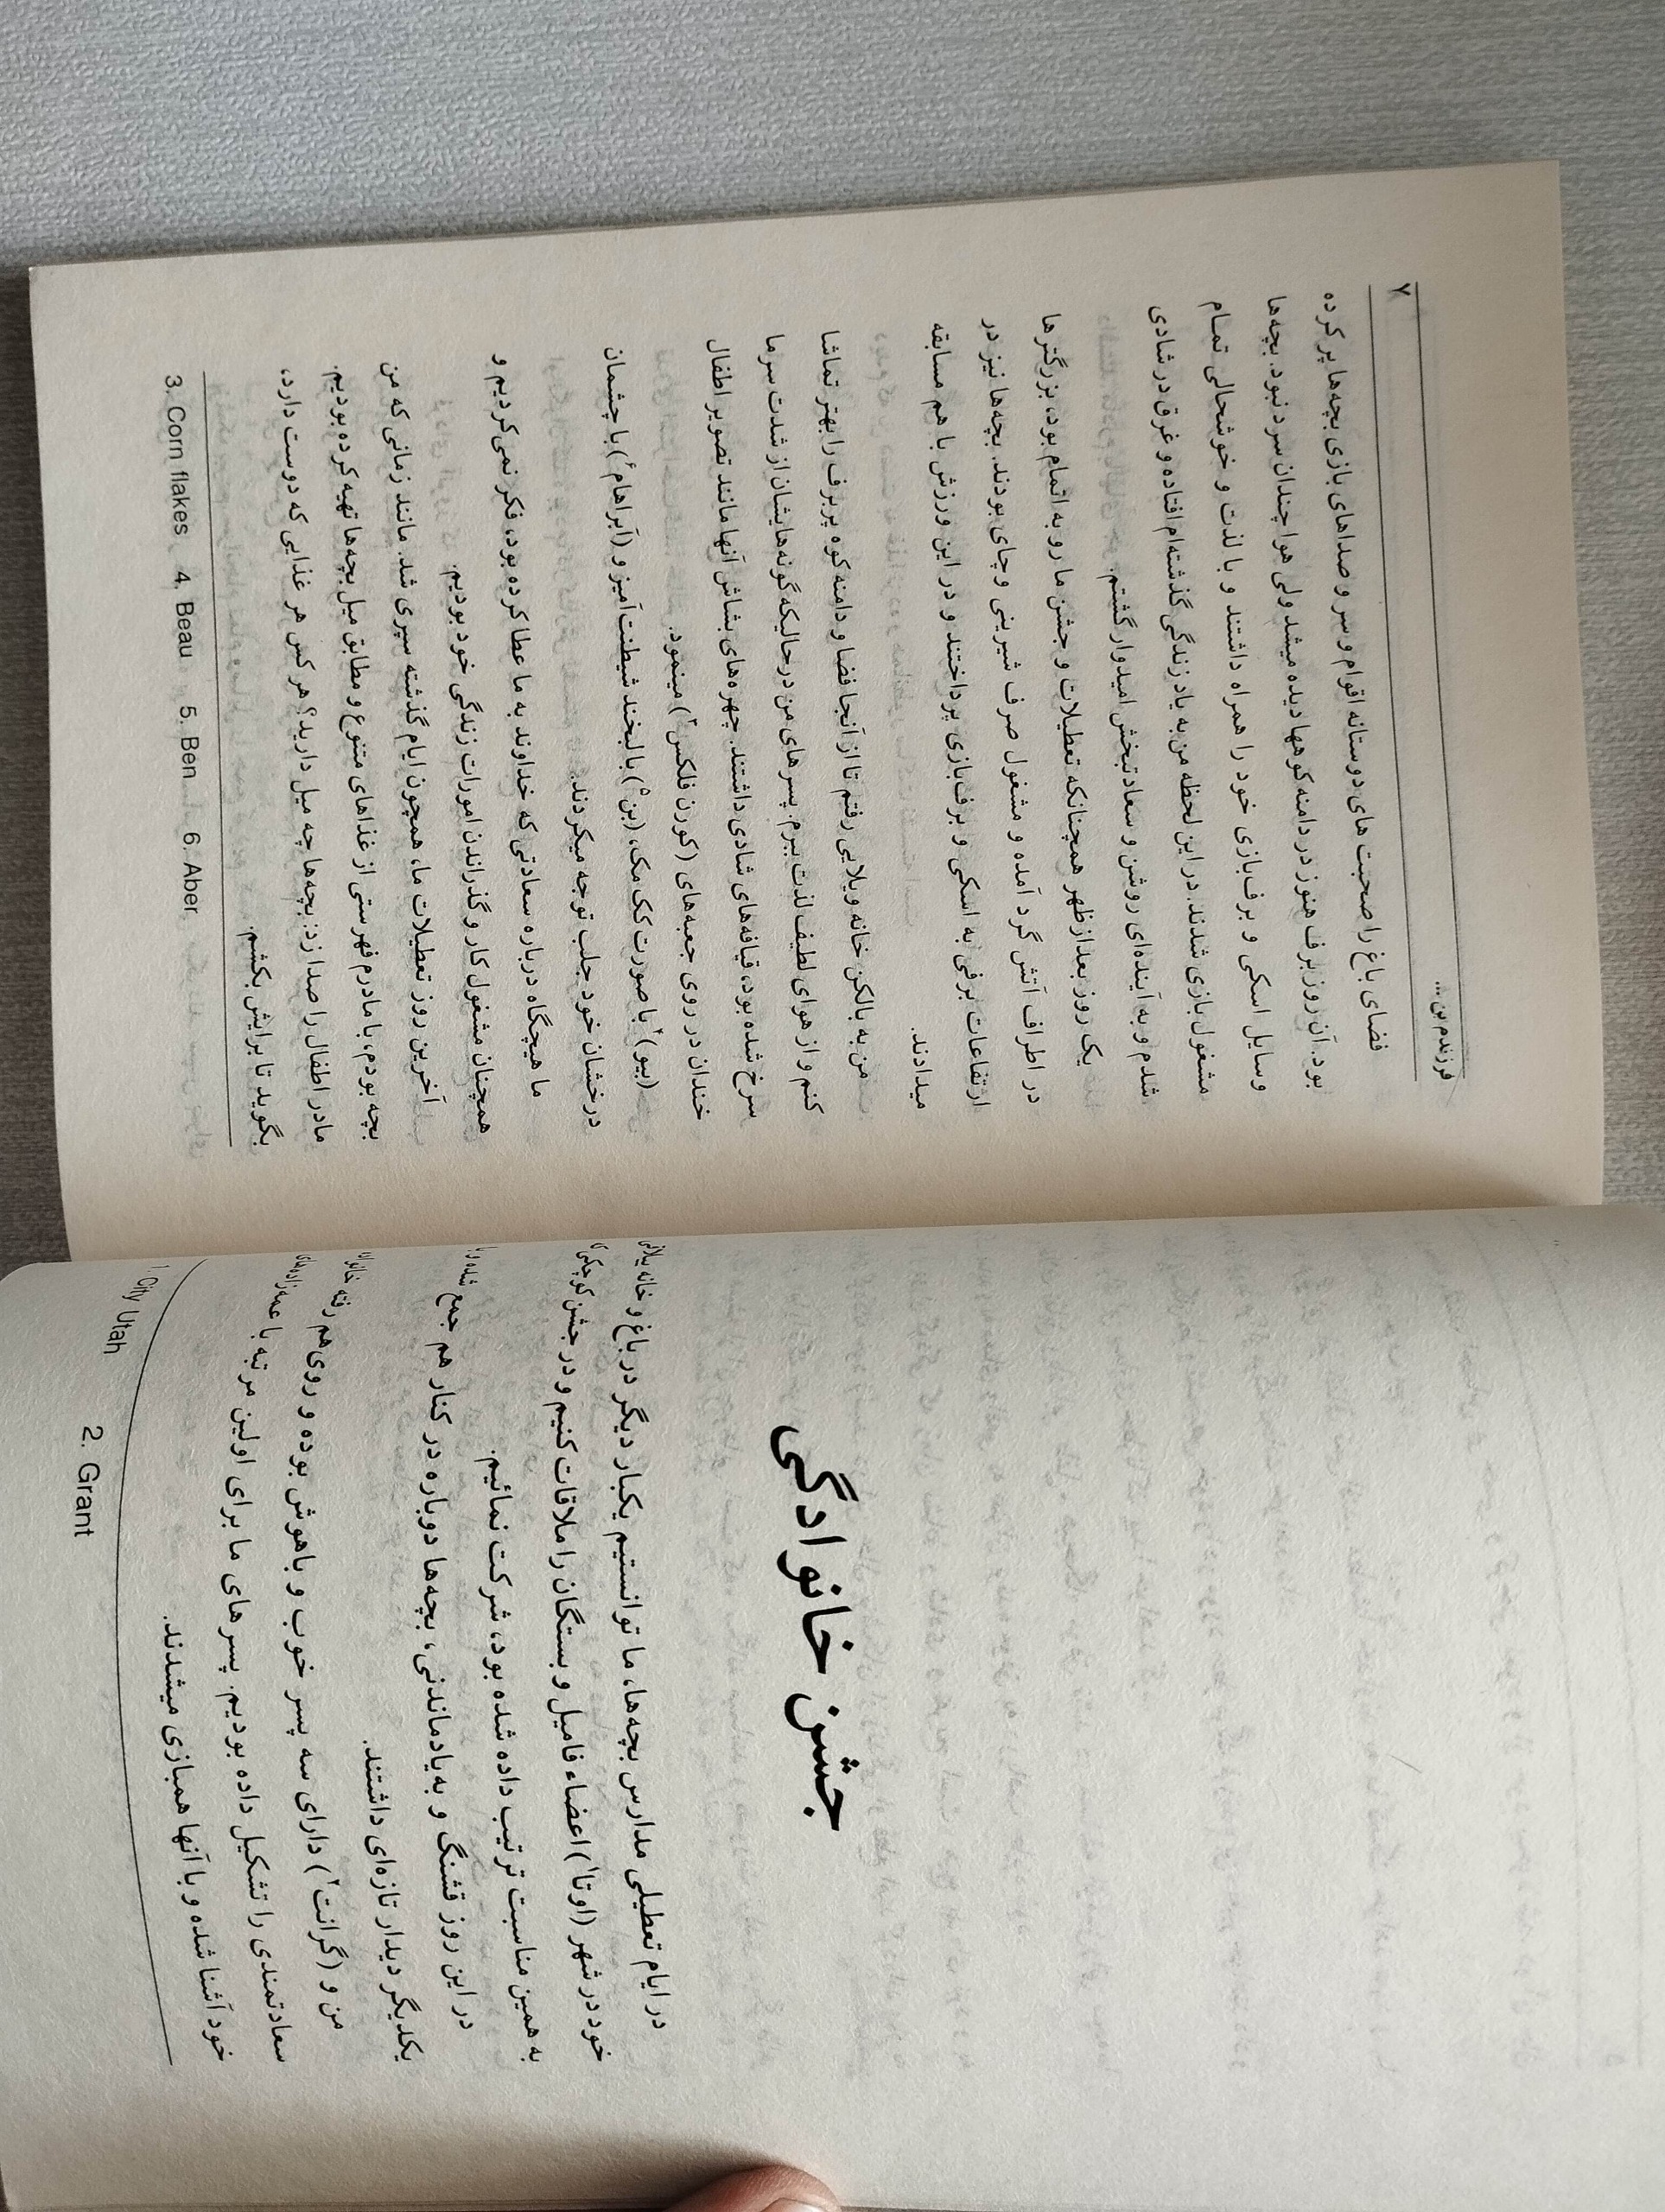 جشن خانوادگی
در ایام تعطیلی مدارس بچه‌ها، ما توانستیم یکبار دیگر در باغ و خانه ییلاقی
خود در شهر (اوتا۱) اعضاء فامیل و بستگان را ملاقات کنیم و در جشن کوچکی که
به همین مناسبت ترتیب داده شده بود، شرکت نمائیم.
در این روز قشنگ و به‌یادماندنی، بچه‌ها دوباره در کنار هم جمع شده و با
یکدیگر دیدار تازه‌ای داشتند.
من و (گرانت۲) دارای سه پسر خوب و باهوش بوده و روی هم رفته خانواده
سعادتمندی را تشکیل داده بودیم. پسرهای ما برای اولین مرتبه با عمه‌زاده‌های
خود آشنا شده و با آنها همبازی میشدند.
1. City Utah 2. Grant
فرزندم بن ... ۷
فضای باغ را صحبت های دوستانه اقوام و سر و صداهای بازی بچه‌ها پر کرده
بود. آن روز برف هنوز در دامنه کوهها دیده میشد ولی هوا چندان سرد نبود. بچه‌ها
وسایل اسکی و برف‌بازی خود را همراه داشتند و با لذت و خوشحالی تمام
مشغول بازی شدند. در این لحظه من به یاد زندگی گذشته‌ام افتاده و غرق در شادی
شدم و به آینده‌ای روشن و سعادتبخش امیدوار گشتم.
یک روز بعدازظهر همچنانکه تعطیلات و جشن ما رو به اتمام بود، بزرگترها
در اطراف آتش گرد آمده و مشغول صرف شیرینی و چای بودند. بچه‌ها نیز در
ارتفاعات برفی به اسکی و برف‌بازی پرداختند و در این ورزش با هم مسابقه
میدادند.
من به بالکن خانه ویلایی رفتم تا از آنجا فضا و دامنه کوه پربرف را بهتر تماشا
کنم و از هوای لطیف لذت ببرم. پسرهای من درحالیکه گونه‌هایشان از شدت سرما
سرخ شده بود، قیافه‌های شادی داشتند. چهره‌های بشاش آنها مانند تصویر اطفال
خندان در روی جعبه‌های (کورن فلکس۳) مینمود.
(بیو۴) با صورت کک مک، (بن۵) با لبخند شیطنت‌آمیز و (آبراهام۶) با چشمان
درخشان خود جلب توجه میکردند.
ما هیچگاه درباره سعادتی که خداوند به ما عطا کرده بود، فکر نمی‌کردیم و
همچنان مشغول کار و گذراندن امورات زندگی خود بودیم.
آخرین روز تعطیلات ما، همچون ایام گذشته سپری شد. مانند زمانی که من
بچه بودم، با مادرم فهرستی از غذاهای متنوع و مطابق میل بچه‌ها تهیه کرده بودیم.
مادر اطفال را صدا زد: بچه‌ها چه میل دارید؟ هر کس هر غذایی که دوست دارد،
بگوید تا برایش بکشم.
3. Corn flakes 4. Beau 5. Ben 6. Aber